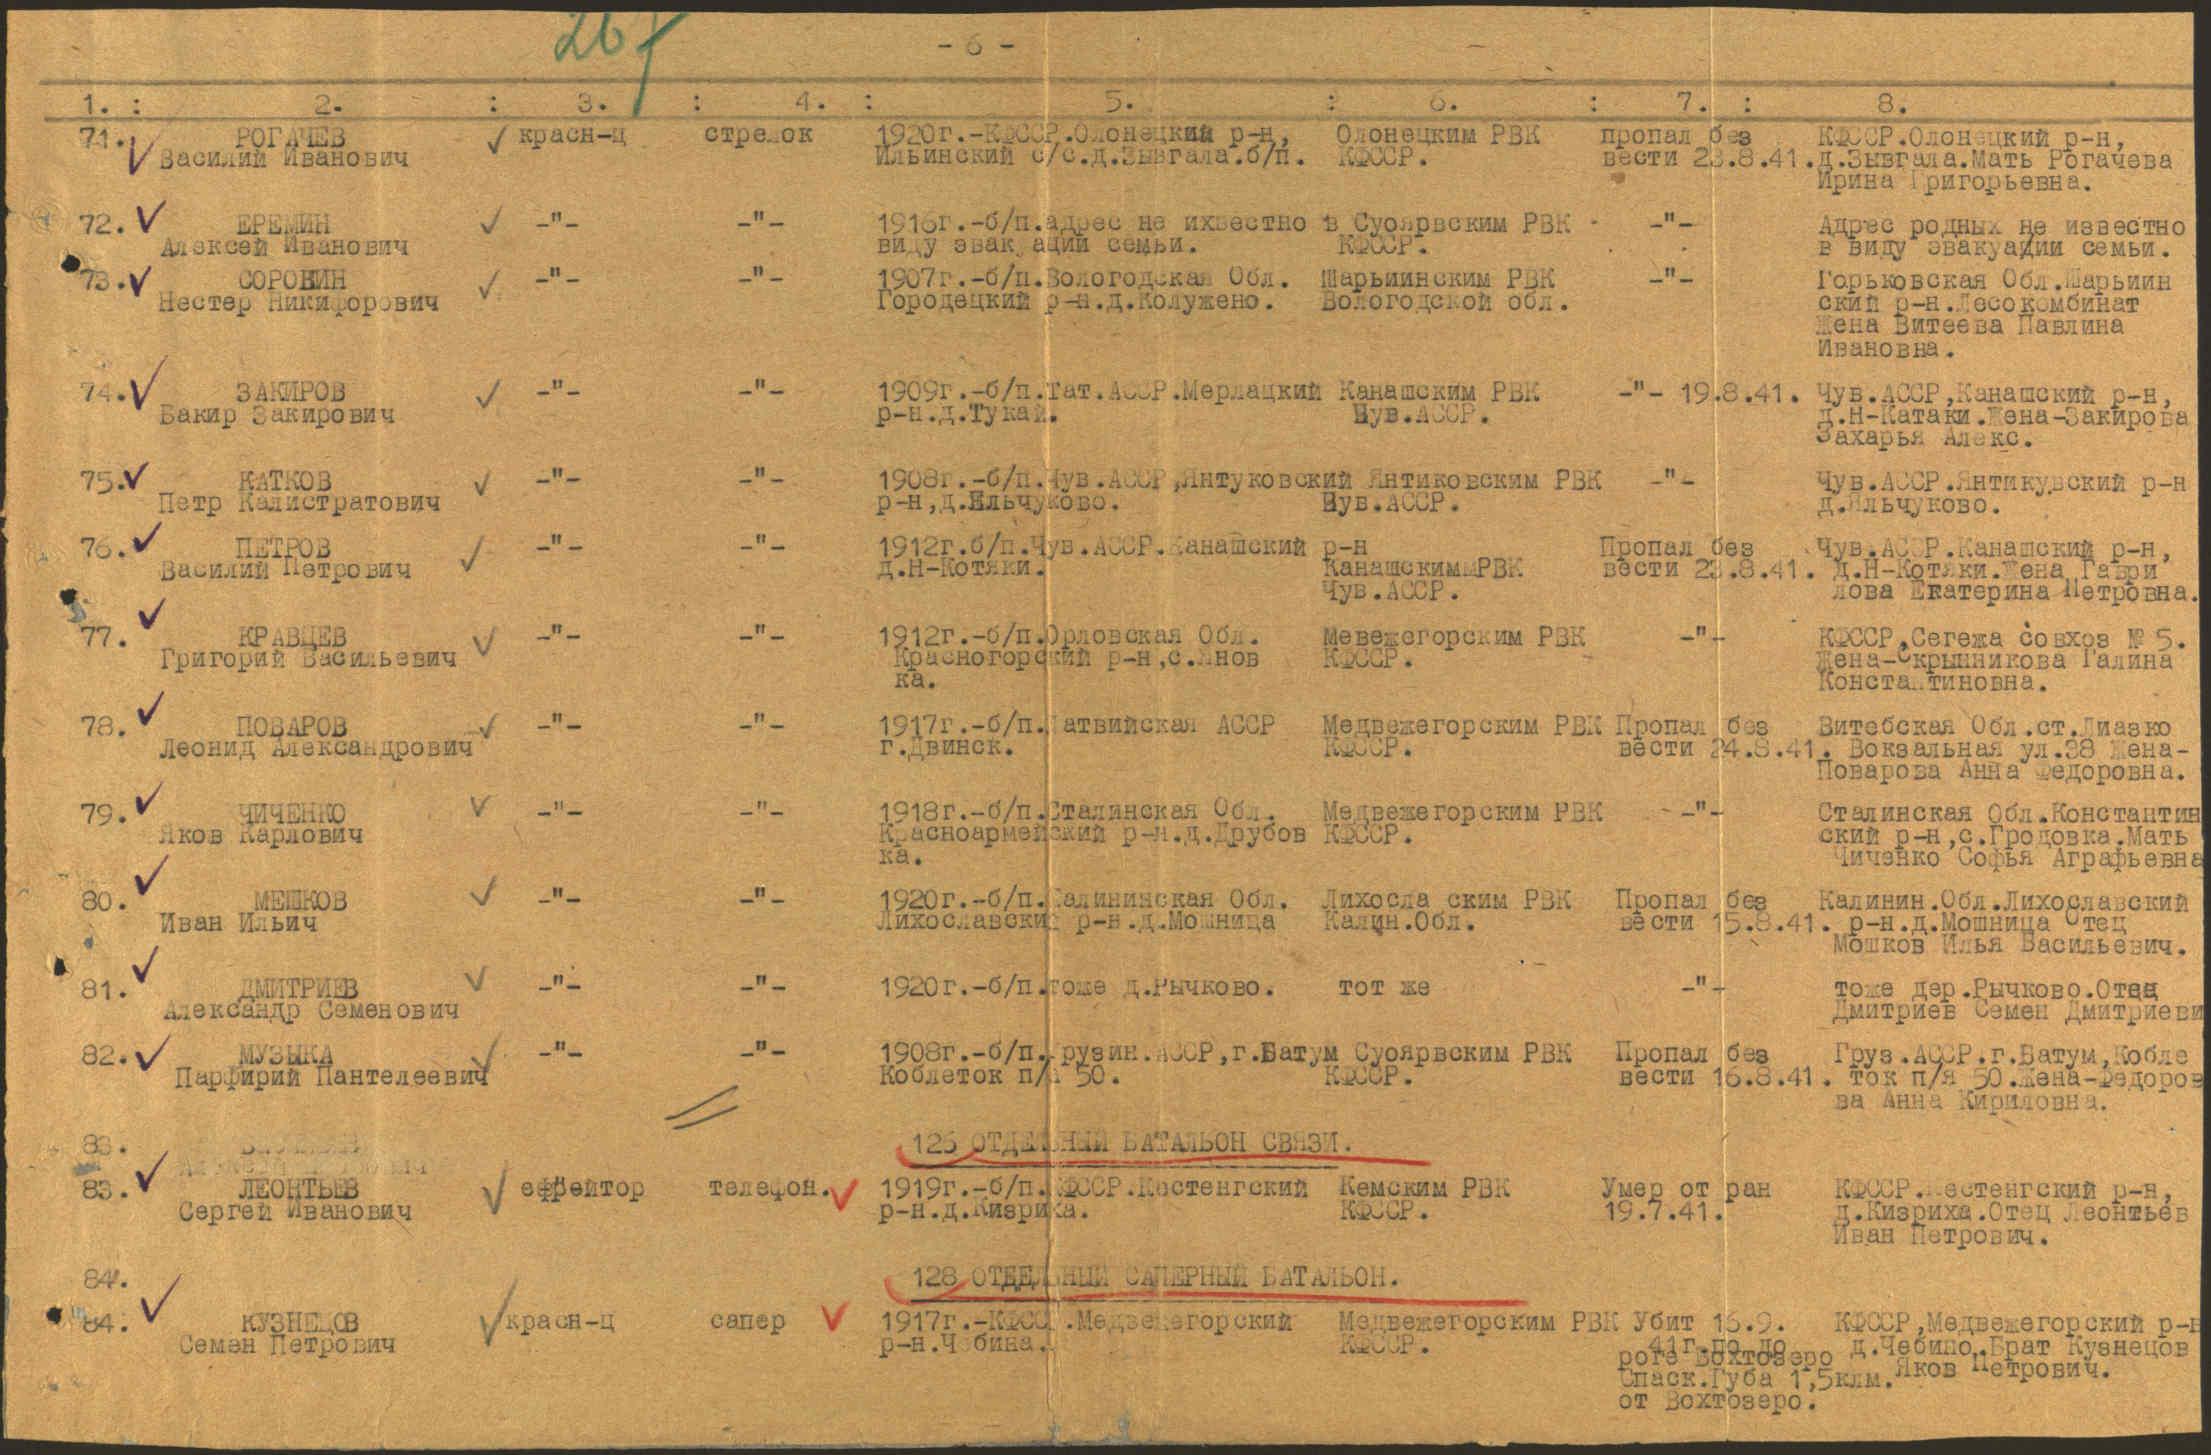 26
- 6 -
1. : 2. : 3. : 4. : 5. : 6. : 7. : 8.
71. РОГАЧЕВ красн-ц стрелок 1920г.-КФССР.Олонецкий р-н, Олонецким РВК пропал без КФССР.Олонецкий р-н,
Василий Иванович Ильинский с/с.д.Зывгала.б/п. КФССР. вести 23.8.41. д.Зывгала.Мать Рогачева
Ирина Григорьевна.
72. ЕРЕМИН -"- -"- 1916г.-б/п.адрес не ихвестно в Суоярвским РВК -"- Адрес родных не известно
Алексей Иванович виду эвакуации семьи. КФССР. в виду эвакуации семьи.
73. СОРОКИН -"- -"- 1907г.-б/п.Вологодская Обл. Шарьиинским РВК -"- Горьковская Обл.Шарьиин
Нестер Никифорович Городецкий р-н.д.Колужено. Вологодской обл. ский р-н.Лесокомбинат
Жена Витеева Павлина
Ивановна.
74. ЗАКИРОВ -"- -"- 1909г.-б/п.Тат.АССР.Мерлацкий Канашским РВК -"- 19.8.41. Чув.АССР,Канашский р-н,
Бакир Закирович р-н.д.Тукай. Чув.АССР. д.Н-Катаки.Жена-Закирова
Захарья Алекс.
75. КАТКОВ -"- -"- 1908г.-б/п.Чув.АССР,Янтуковский Янтиковским РВК -"- Чув.АССР.Янтикувский р-н
Петр Калистратович р-н,д.Яльчуково. Чув.АССР. д.Яльчуково.
76. ПЕТРОВ -"- -"- 1912г.б/п.Чув.АССР.Канашский р-н Пропал без Чув.АССР.Канашский р-н,
Василий Петрович д.Н-Котяки. Канашским РВК вести 23.8.41. д.Н-Котяки.Жена Гаври
Чув.АССР. лова Екатерина Петровна.
77. КРАВЦЕВ -"- -"- 1912г.-б/п.Орловская Обл. Мевежегорским РВК -"- КФССР,Сегежа совхоз № 5.
Григорий Васильевич Красногорский р-н,с.Янов КФССР. Жена-Скрынникова Галина
ка. Константиновна.
78. ПОВАРОВ -"- -"- 1917г.-б/п.Латвийская АССР Медвежегорским РВК Пропал без Витебская Обл.ст.Лиазко
Леонид Александрович г.Двинск. КФССР. вести 24.8.41. Вокзальная ул.38 Жена-
Поварова Анна Федоровна.
79. ЧИЧЕНКО -"- -"- 1918г.-б/п.Сталинская Обл. Медвежегорским РВК -"- Сталинская Обл.Константин
Яков Карлович Красноармейский р-н.д.Друбов КФССР. ский р-н,с.Гродовка.Мать
ка. Чиченко Софья Аграфьевна
80. МЕШКОВ -"- -"- 1920г.-б/п.Калининская Обл. Лихосла ским РВК Пропал без Калинин.Обл.Лихославский
Иван Ильич Лихославский р-н.д.Мошница Калин.Обл. вести 15.8.41. р-н.д.Мошница Отец
Мошков Илья Васильевич.
81. ДМИТРИЕВ -"- -"- 1920г.-б/п.тоже д.Рычково. тот же -"- тоже дер.Рычково.Отец
Александр Семенович Дмитриев Семен Дмитриеви
82. МУЗЫКА -"- -"- 1908г.-б/п.Грузин.АССР,г.Батум Суоярвским РВК Пропал без Груз.АССР.г.Батум,Кобле
Парфирий Пантелеевич Коблеток п/я 50. КФССР. вести 16.8.41. ток п/я 50.Жена-Федоров
ва Анна Кириловна.
83. 126 ОТДЕЛЬНЫЙ БАТАЛЬОН СВЯЗИ.
83. ЛЕОНТЬЕВ ефрейтор телефон. 1919г.-б/п.КФССР.Кестенгский Кемским РВК Умер от ран КФССР.Кестенгский р-н,
Сергей Иванович р-н.д.Кизрика. КФССР. 19.7.41. д.Кизриха.Отец Леонтьев
Иван Петрович.
84. 128 ОТДЕЛЬНЫЙ САПЕРНЫЙ БАТАЛЬОН.
84. КУЗНЕЦОВ красн-ц сапер 1917г.-КФССР.Медвежегорский Медвежегорским РВК Убит 16.9. КФССР,Медвежегорский р-н
Семен Петрович р-н.Чебина. КФССР. 41г.по до д.Чебино.Брат Кузнецов
роге Вохтозеро Яков Петрович.
Спаск.Губа 1,5клм.
от Вохтозеро.